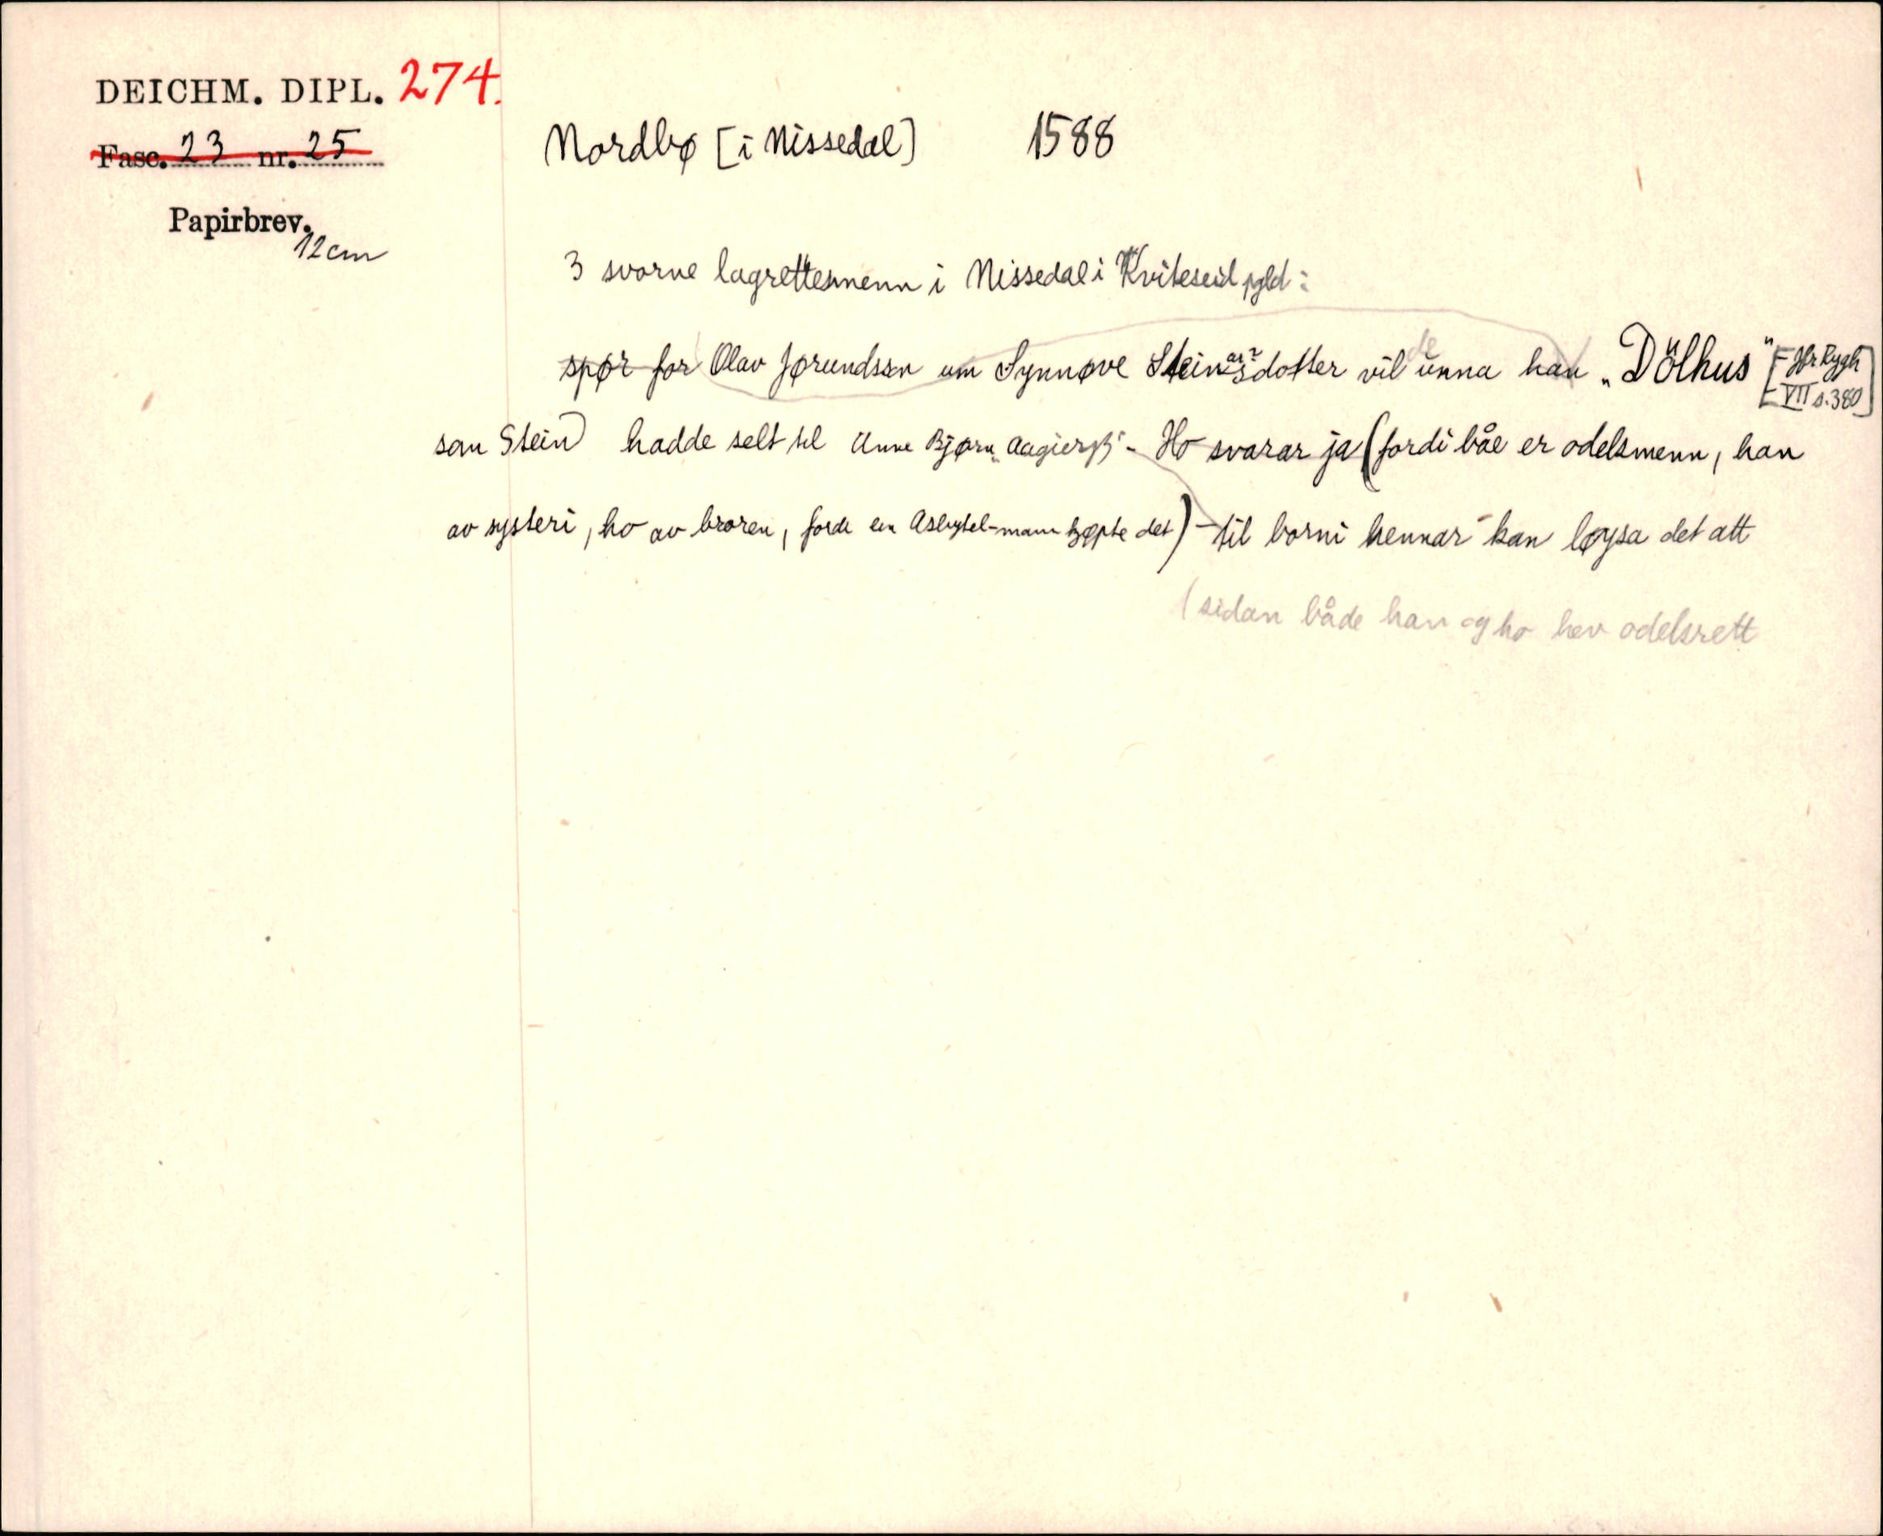 DEICHM. DIPL. 274.
Fasc. 23 nr. 25
Papirbrev.
12 cm
Nordbø [i Nissedal] 1588
3 svorne lagrettesmenn i Nissedal i Kviteseid pgld:
spør for Olav Jørundssn um Synnøve Steinsdotter vil unna han „Dölhus" [Jfr Rygh
VII s. 380]
som Stein hadde selt til Unne Bjørn - Ho svarar ja (fordi båe er odelsmenn, han
av systeri, ho av broren, forde ein -mann kjøpte det) - til borni hennar kan løysa det att
(sidan både han og ho hev odelsrett